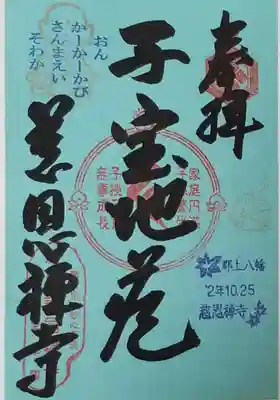 奉拝
子宝地蔵
おん
かーかーかび
さんまえい
そわか
慈恩禅寺
家庭円満
子孫繁栄
子授
無事成長
郡上八幡
'2年10.25
慈恩禅寺